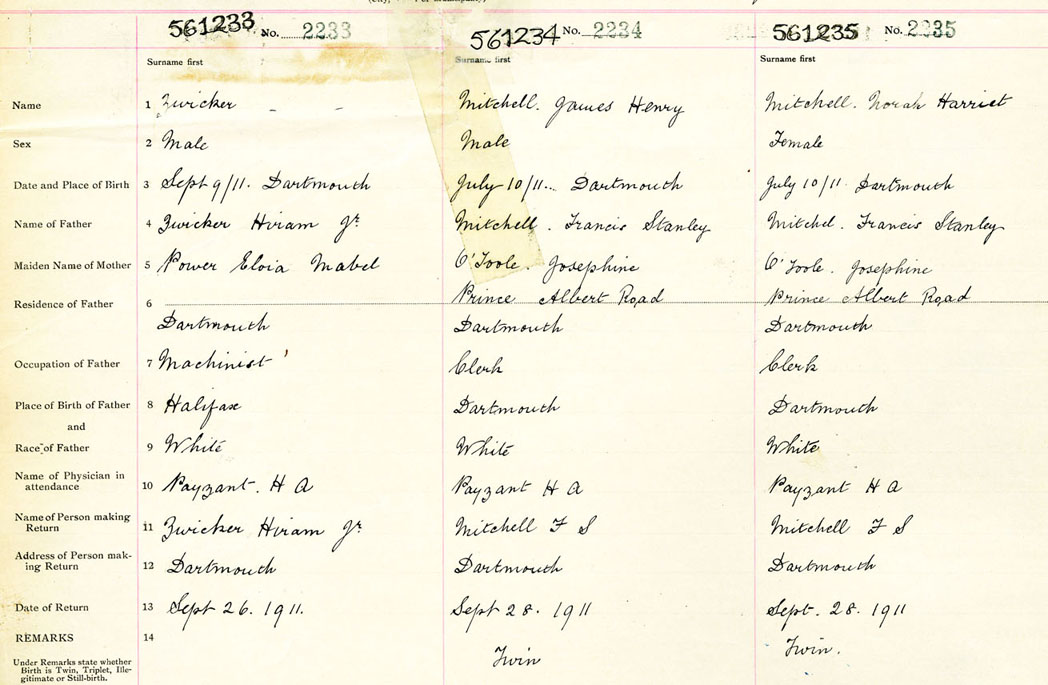 561233 No. 2233 561234 No. 2234 561235 No. 2235
Surname first Surname first Surname first
Name 1 Zwicker - - Mitchell. James Henry Mitchell. Norah Harriet
Sex 2 Male Male Female
Date and Place of Birth 3 Sept 9/11. Dartmouth July 10/11... Dartmouth July 10/11 Dartmouth
Name of Father 4 Zwicker Hiram Jr. Mitchell. Francis Stanley Mitchel. Francis Stanley
Maiden Name of Mother 5 Power Elvia Mabel O'Toole. Josephine O'Toole. Josephine
Residence of Father 6 Prince Albert Road Prince Albert Road
Dartmouth Dartmouth Dartmouth
Occupation of Father 7 Machinist Clerk Clerk
Place of Birth of Father 8 Halifax Dartmouth Dartmouth
and
Race of Father 9 White White White
Name of Physician in
attendance 10 Payzant. H A Payzant H A Payzant H A
Name of Person making
Return 11 Zwicker Hiram Jr. Mitchell F S Mitchell F S
Address of Person mak-
ing Return 12 Dartmouth Dartmouth Dartmouth
Date of Return 13 Sept 26. 1911. Sept 28. 1911 Sept. 28. 1911
REMARKS 14
Twin Twin.
Under Remarks state whether
Birth is Twin, Triplet, Ille-
gitimate or Still-birth.